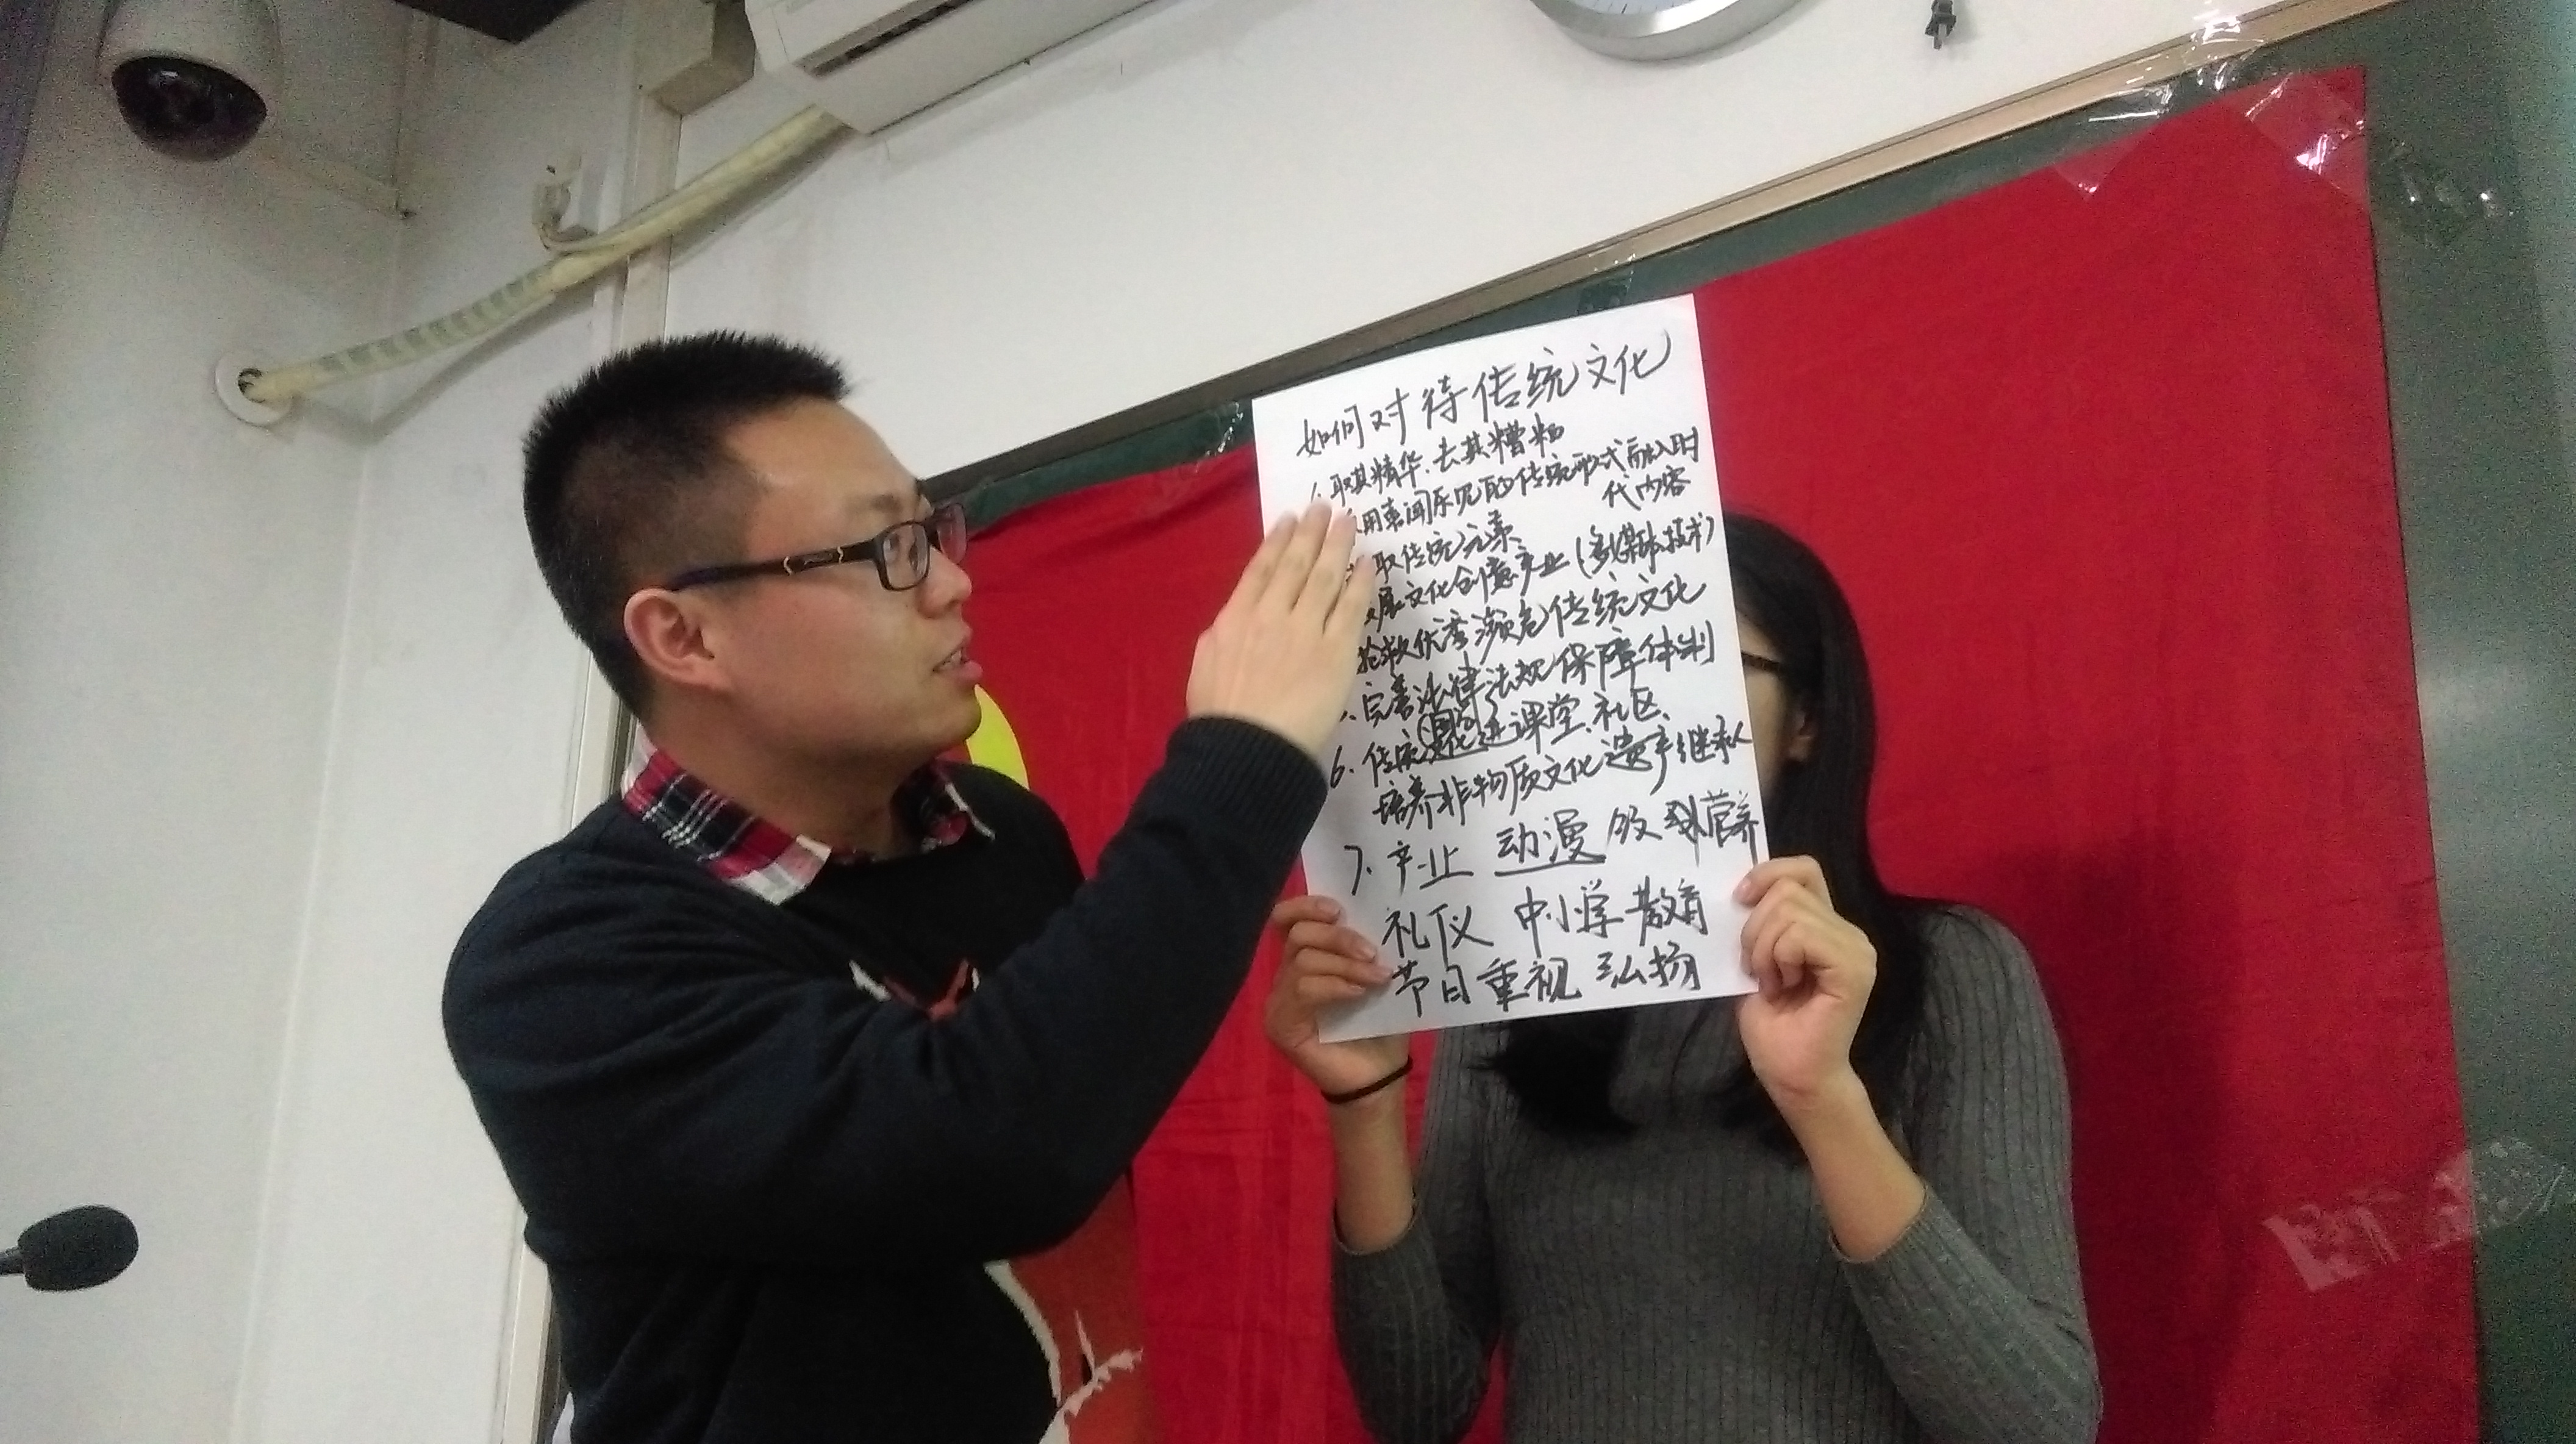 如何对待传统文化
1. 取其精华、去其糟粕
用喜闻乐见的传统形式融入时
代内容
取传统元素
展文化创意产业（多媒体技术）
抢救优秀濒危传统文化
完善法律法规保障体制
6. 传统文化进课堂、社区、
培养非物质文化遗产继承人
7. 产业 动漫 营养
礼仪 中小学教育
节日重视 弘扬